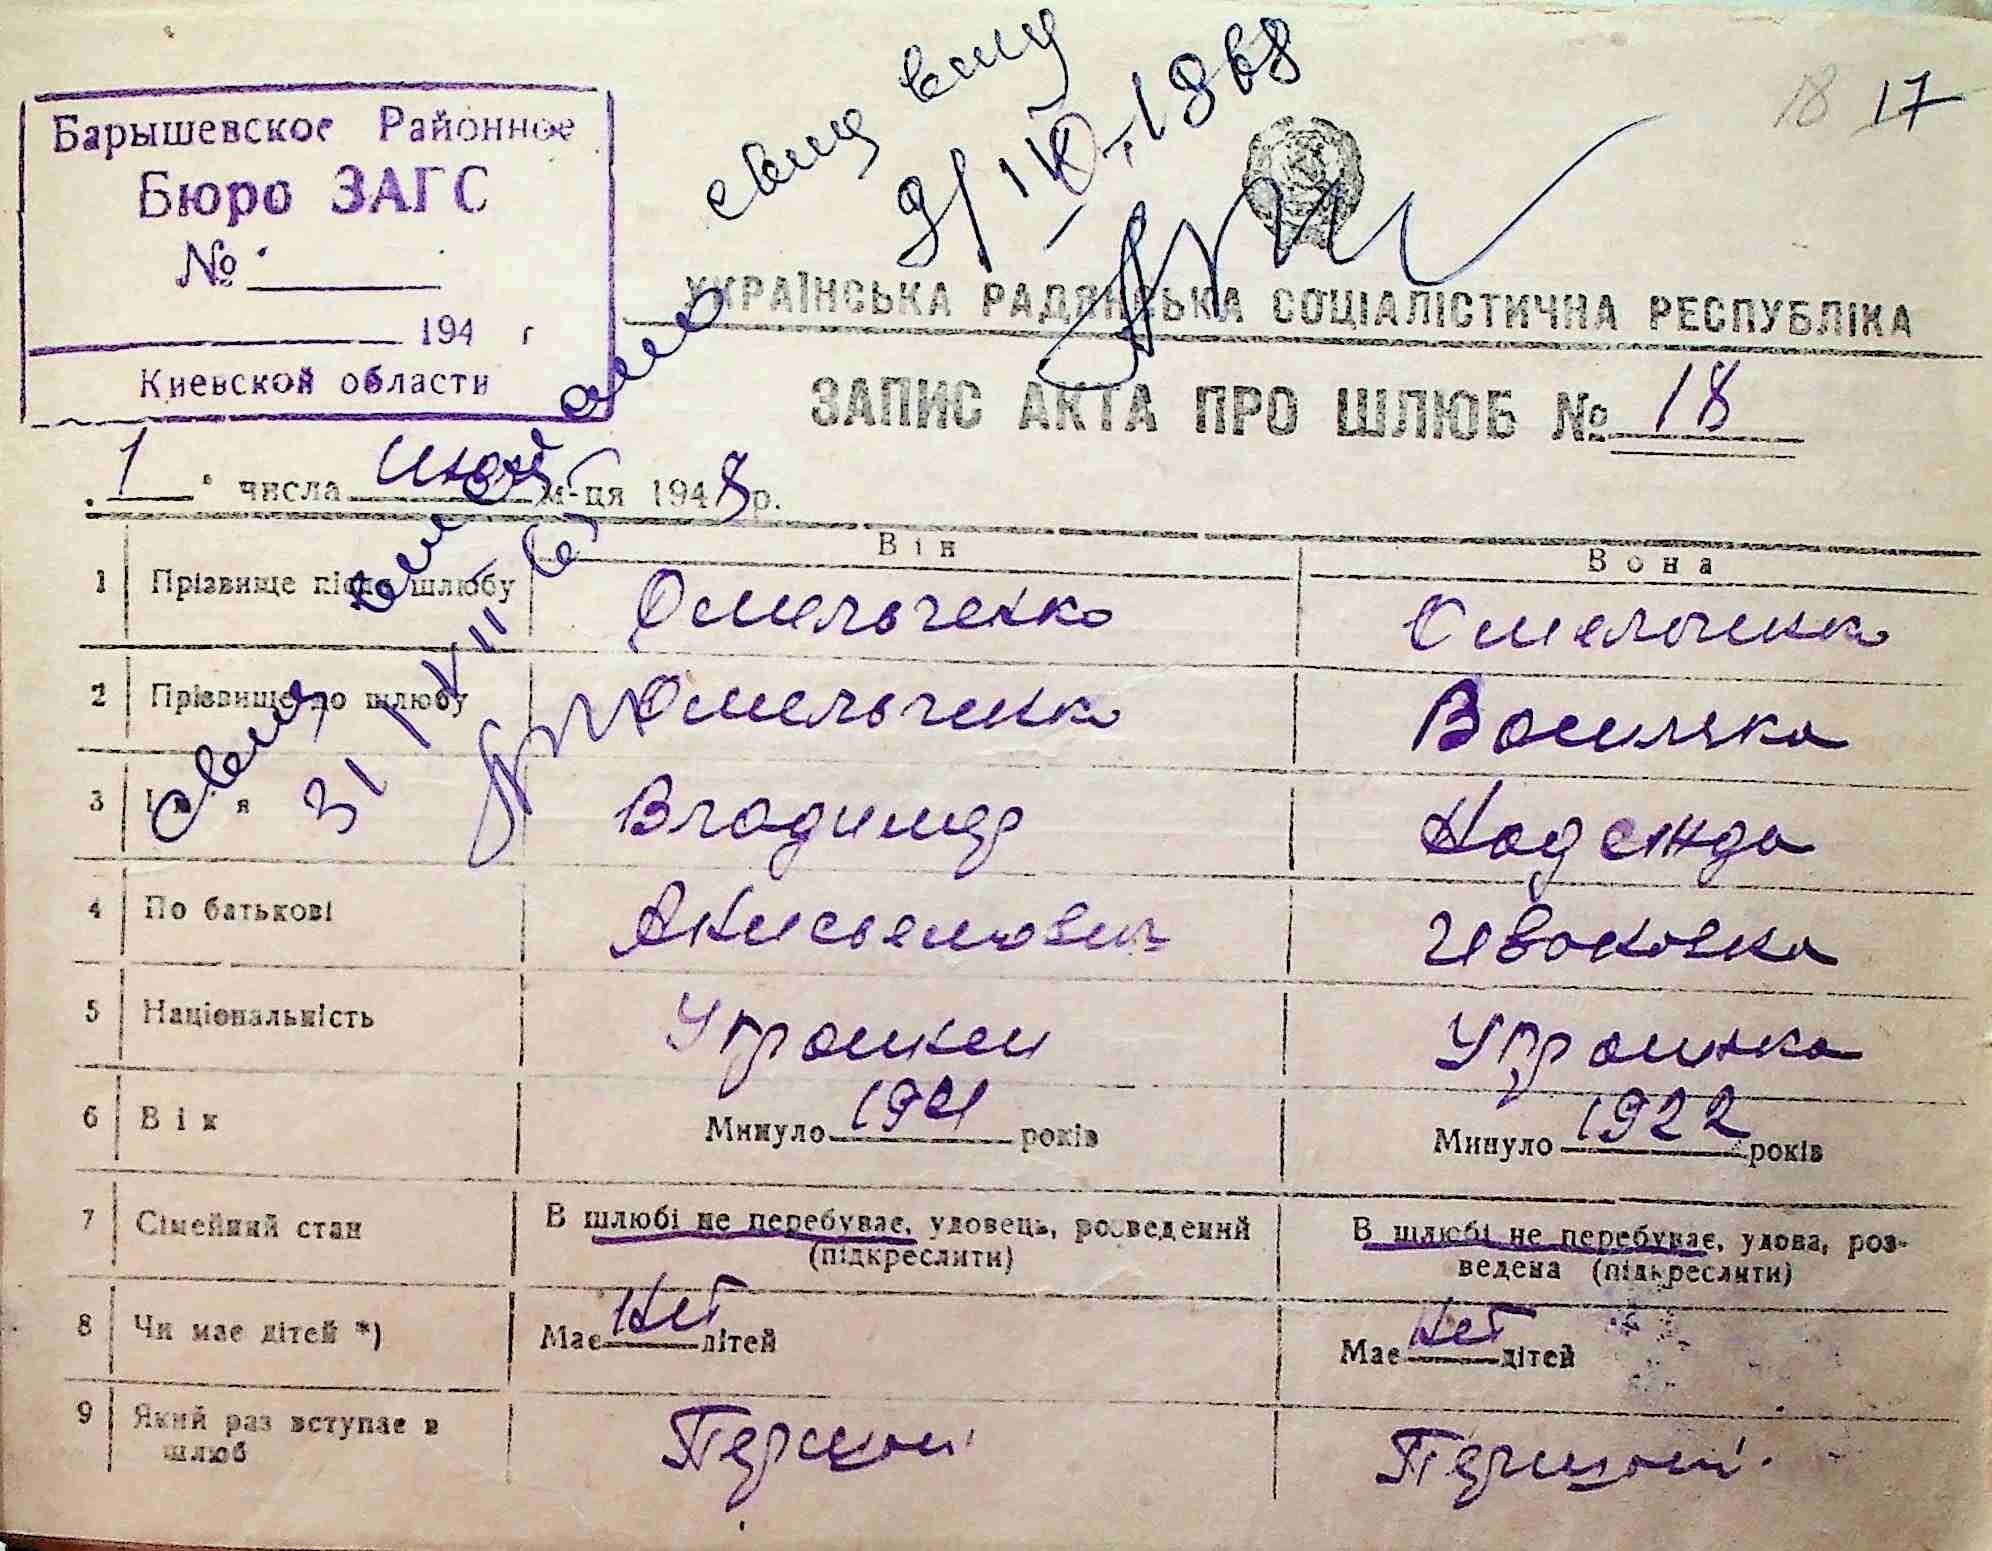 18 17
Барышевское Районное
Бюро ЗАГС
№
194 г
Киевской области
свид выд
9/IV-1968
УКРАЇНСЬКА РАДЯНСЬКА СОЦІАЛІСТИЧНА РЕСПУБЛІКА
ЗАПИС АКТА ПРО ШЛЮБ № 18
1 числа м-ця 1948 р.
Він Вона
1 Прізвище після шлюбу Омельченко Омельченко
2 Прізвище до шлюбу Омельченко
3 Ім'я Владимир Надежда
4 По батькові Ивановна
5 Національність Украинка
6 Вік Минуло років Минуло 1922 років
7 Сімейний стан В шлюбі не перебуває, удовець, розведений (підкреслити) В шлюбі не перебуває, удова, розведена (підкреслити)
8 Чи має дітей *) Має нет дітей Має нет дітей
9 Який раз вступає в шлюб
свид
31/VII